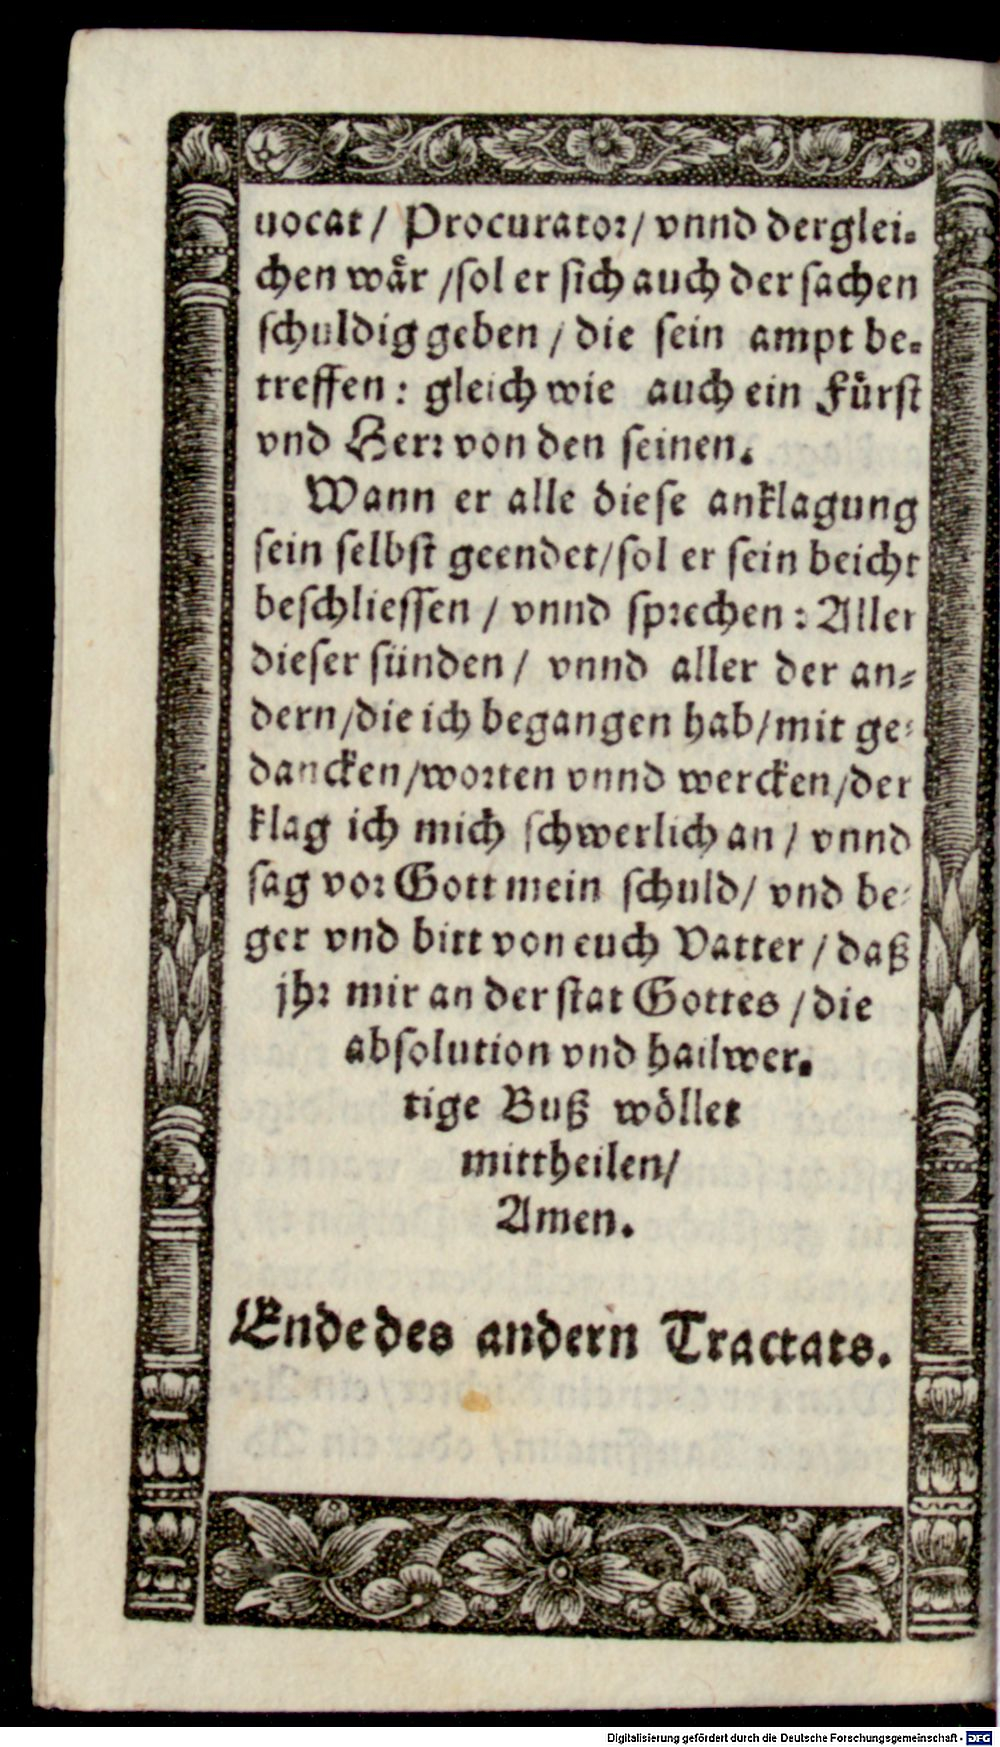 uocat / Procurator / vnnd derglei-
chen wår / sol er sich auch der sachen
schuldig geben / die sein ampt be-
treffen : gleich wie auch ein Fůrst
vnd Herr von den seinen.
Wann er alle diese anklagung
sein selbst geendet / sol er sein beicht
beschliessen / vnnd sprechen : Aller
dieser sünden / vnnd aller der an-
dern / die ich begangen hab / mit ge-
dancken / worten vnnd wercken / der
klag ich mich schwerlich an / vnnd
sag vor Gott mein schuld / vnd be-
ger vnd bitt von euch Vatter / daß
jhr mir an der stat Gottes / die
absolution vnd hailwer-
tige Buß wöllet
mittheilen /
Amen.
Ende des andern Tractats.
Digitalisierung gefördert durch die Deutsche Forschungsgemeinschaft - DFG